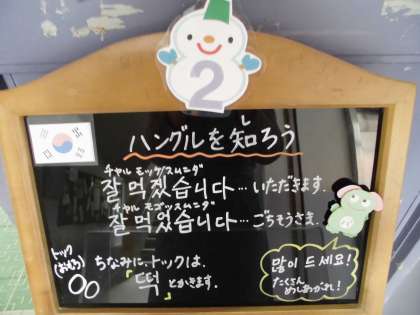 2
し
ハングルを知ろう
チャル モッケスムニダ
잘 먹겠습니다…いただきます.
チャル モゴッスムニダ
잘 먹었습니다…ごちそうさま.
トック
(おもち)
ちなみに、トックは、
「떡」とかきます.
많이 드세요!
たくさん
めしあがれ!